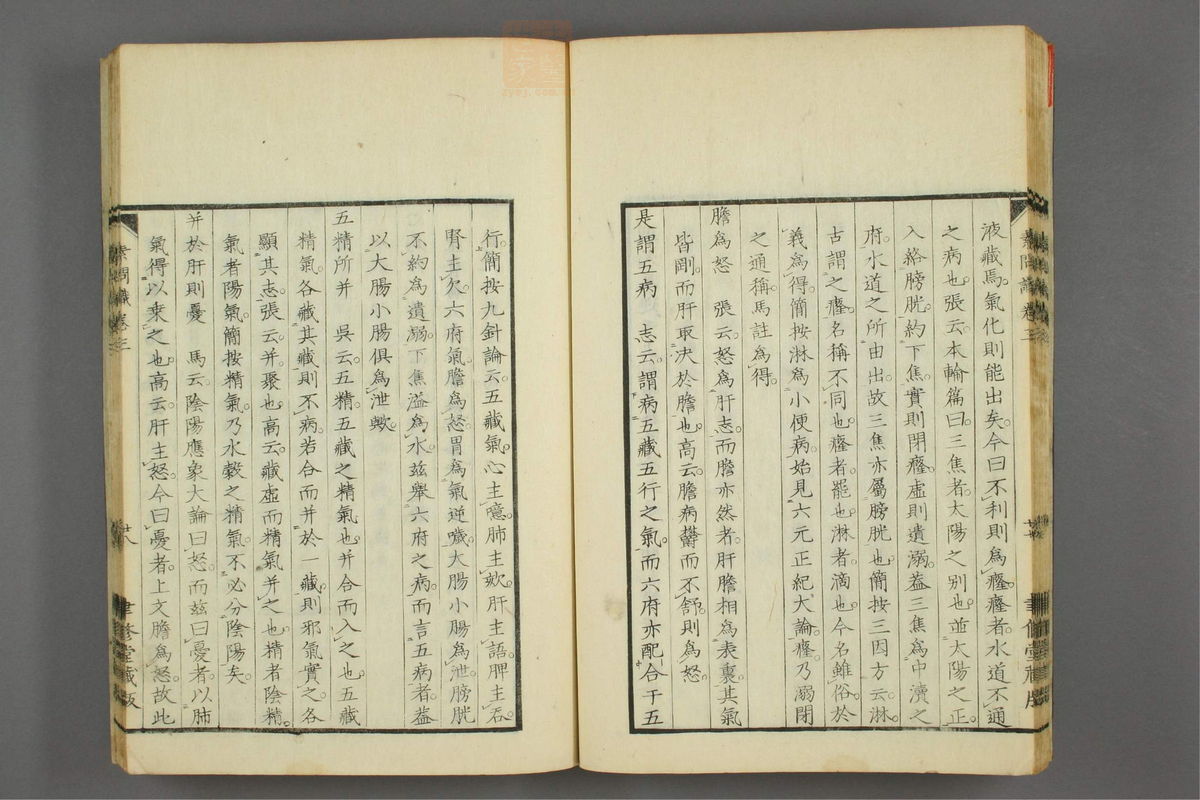 液藏焉氣化則能出矣今曰不利則爲癃癃者水道不通
之病也張云本輸篇曰三焦者太陽之別也並太陽之正
入絡膀胱約下焦實則閉癃虛則遺溺蓋三焦爲中瀆之
府水道之所由出故三焦亦屬膀胱也簡按三因方云淋
古謂之癃名稱不同也癃者罷也淋者滴也今名雖俗於
義爲得簡按淋爲小便病始見六元正紀大論癃乃溺閉
之通稱馬註爲得
膽爲怒 張云怒爲肝志而膽亦然者肝膽相爲表裏其氣
皆剛而肝取決於膽也高云膽病鬱而不舒則爲怒
是謂五病 志云謂病五藏五行之氣而六府亦配合于五
行簡按九針論云五藏氣心主噫肺主欬肝主語脾主吞
腎主欠六府氣膽爲怒胃爲氣逆噦大腸小腸爲泄膀胱
不約爲遺溺下焦溢爲水茲舉六府之病而言五病者蓋
以大腸小腸俱爲泄歟
五精所并 吳云五精五藏之精氣也并合而入之也五藏
精氣各藏其藏則不病若合而并於一藏則邪氣實之各
顯其志張云并聚也高云藏虛而精氣并之也精者陰精
氣者陽氣簡按精氣乃水穀之精氣不必分陰陽矣
并於肝則憂 馬云陰陽應象大論曰怒而茲曰憂者以肺
氣得以乘之也高云肝主怒今曰憂者上文膽爲怒故此
素問識卷三
廿八
聿修堂藏版